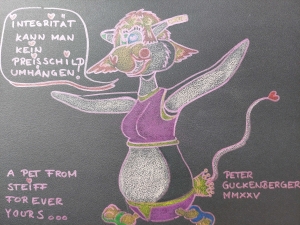 INTEGRITÄT
KANN MAN
KEIN
PREISSCHILD
UMHÄNGEN!
A PET FROM
STEIFF
FOREVER
YOURS...
PETER
GUCKENBERGER
MMXXV